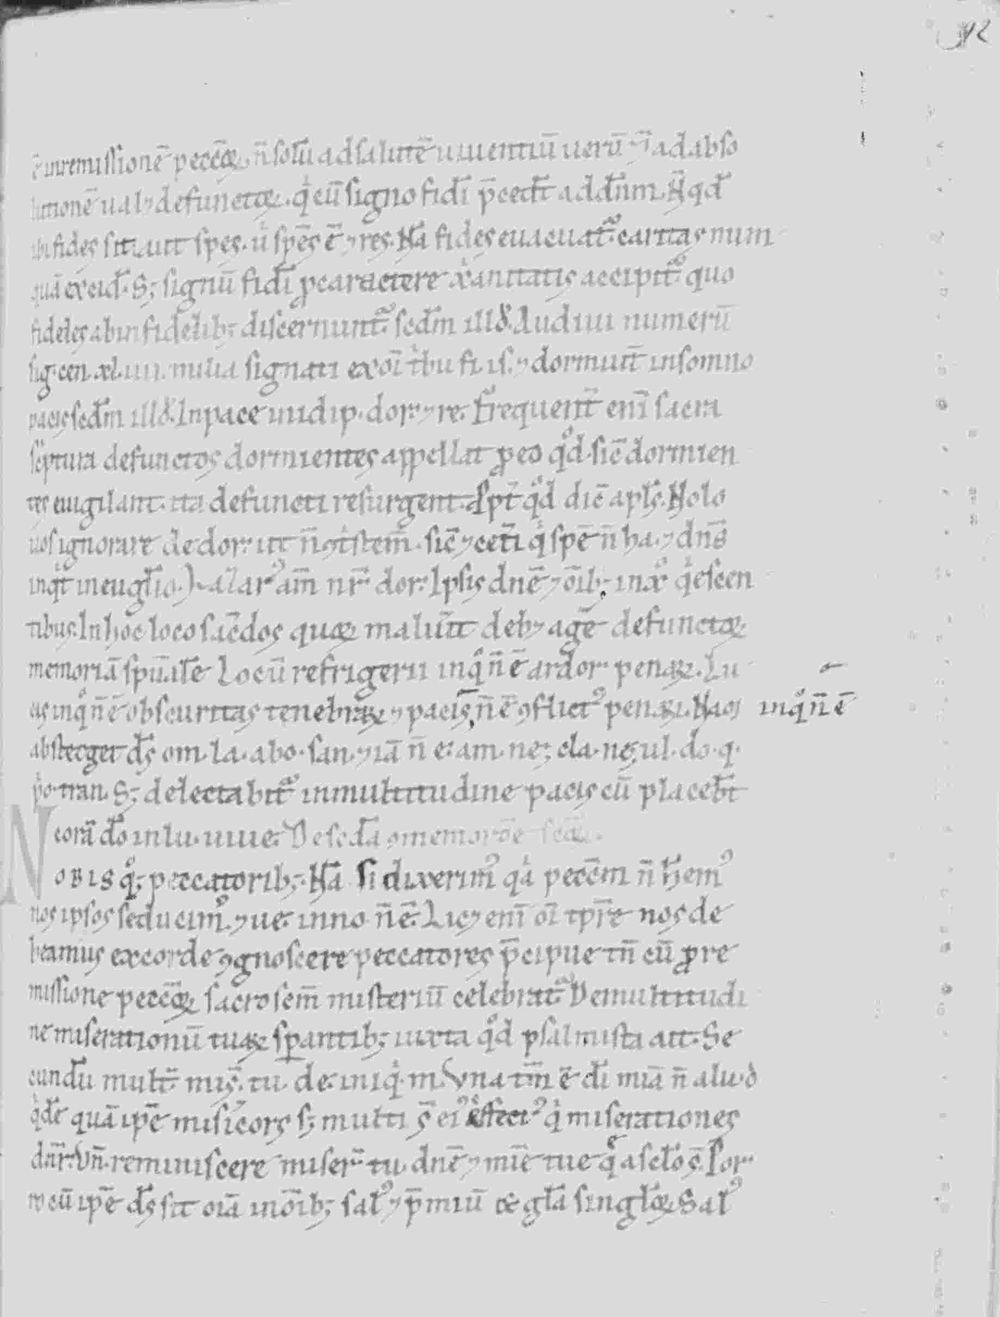 92
ē inremissionē peccōꝝ. n̄ solū ad salutē uiuentiū uerū ⁊ ad abso
lutionē ualꝫ defunctoꝝ. q̇ cū signo fidī p̄cedt̄ ad dn̄m. N̄ qd̄
ubi fides sit. aut spes. ł spēs ē ⁊ res. Nā fides euacuatᷣ. caritas num
quā excid̄. Sꝫ signū fidī ꝓ caractere xꝓ̄anitatis accipitᷣ. quo
fideles ab infidelibꝫ discernuntᷣ. scdm̄ illđ. Audiui numerū
sig. cen. xl. iiii. milia signati ex oī tbu fi. is. ⁊ dormiunt̄ in somno
pacis scdm̄ illđ. In pace in idip. dor. ⁊ re. Frequent̄ enī sacra
sc̄ptura defunctos dormientes appellat ꝓ eo qd̊ sic̄ dormien
tes euigilant. ita defuncti resurgent. Ꝓpt̄ qd̊ dic̄ apls̄. Nolo
uos ignorare de dor. ut n̄ ꝯtstem̄. sic̄ ⁊ cet̄i q̇ spē n̄ ha. ⁊ dn̄s
inqt̄ in eugl̄io. Lazarᷣ am̄ nr̄ dor. Ipsis dn̄e ⁊ oīb; in xꝓ̄ q̇escen
tibus. In hoc loco sac̄dos quaꝝ maluit̄ deb; agē defunctoꝝ
memoriā spūalē. Locū refrigerii inq̊ n̄ ē ardor penaꝝ. Lu
cis inq̊ n̄ ē obscuritas tenebraꝝ ⁊ pacis, n̄ ē ꝯflictᷣ penaꝝ. Nā os inq̊ n̄ ē
absterget ds̄ om. la. ab o. san. ⁊ iā n̄ e. am. neꝫ cla. neꝫ ul. do. q.
p̊o. tran. Sꝫ delectabitᷣ in multitudine pacis cū placebt̄
corā dō in lu. uiue.
NOBIS qꝫ peccatoribꝫ. Nā si dixerimᷣ qȧ peccm̄ n̄ hēmᷣ
nos ipsos seducimᷣ. ⁊ ue. in no. n̄ ē. Licꝫ enī oī tpr̄e nos de
beamus ex corde ꝯgnoscere peccatores p̄cipue tn̄ cū ꝓ re
missione pecc̄oꝝ sacrosem̄ misteriū celebratᷣ. De multitudi
ne miserationū tuaꝝ sꝑantibꝫ iuxta qd̊ psalmista ait. Se
cundū mult̄ mis̄. tu. de. iniq̇. m. Una tm̄ ē dī mīa n̄ aliud
q̇dē quā ipē misicors sꝫ multi s̄ eiᷣ effectᷣ q̇ miserationes
dnr̄. Un̄. reminiscere miser̄ tu. dn̄e ⁊ mīe tue q̄ a sclō s̄. Por
ro cū ipē ds̄ sit oīa in oīb; salᷣ ⁊ p̄miū ⁊ glā singloꝝ. Salᷣ